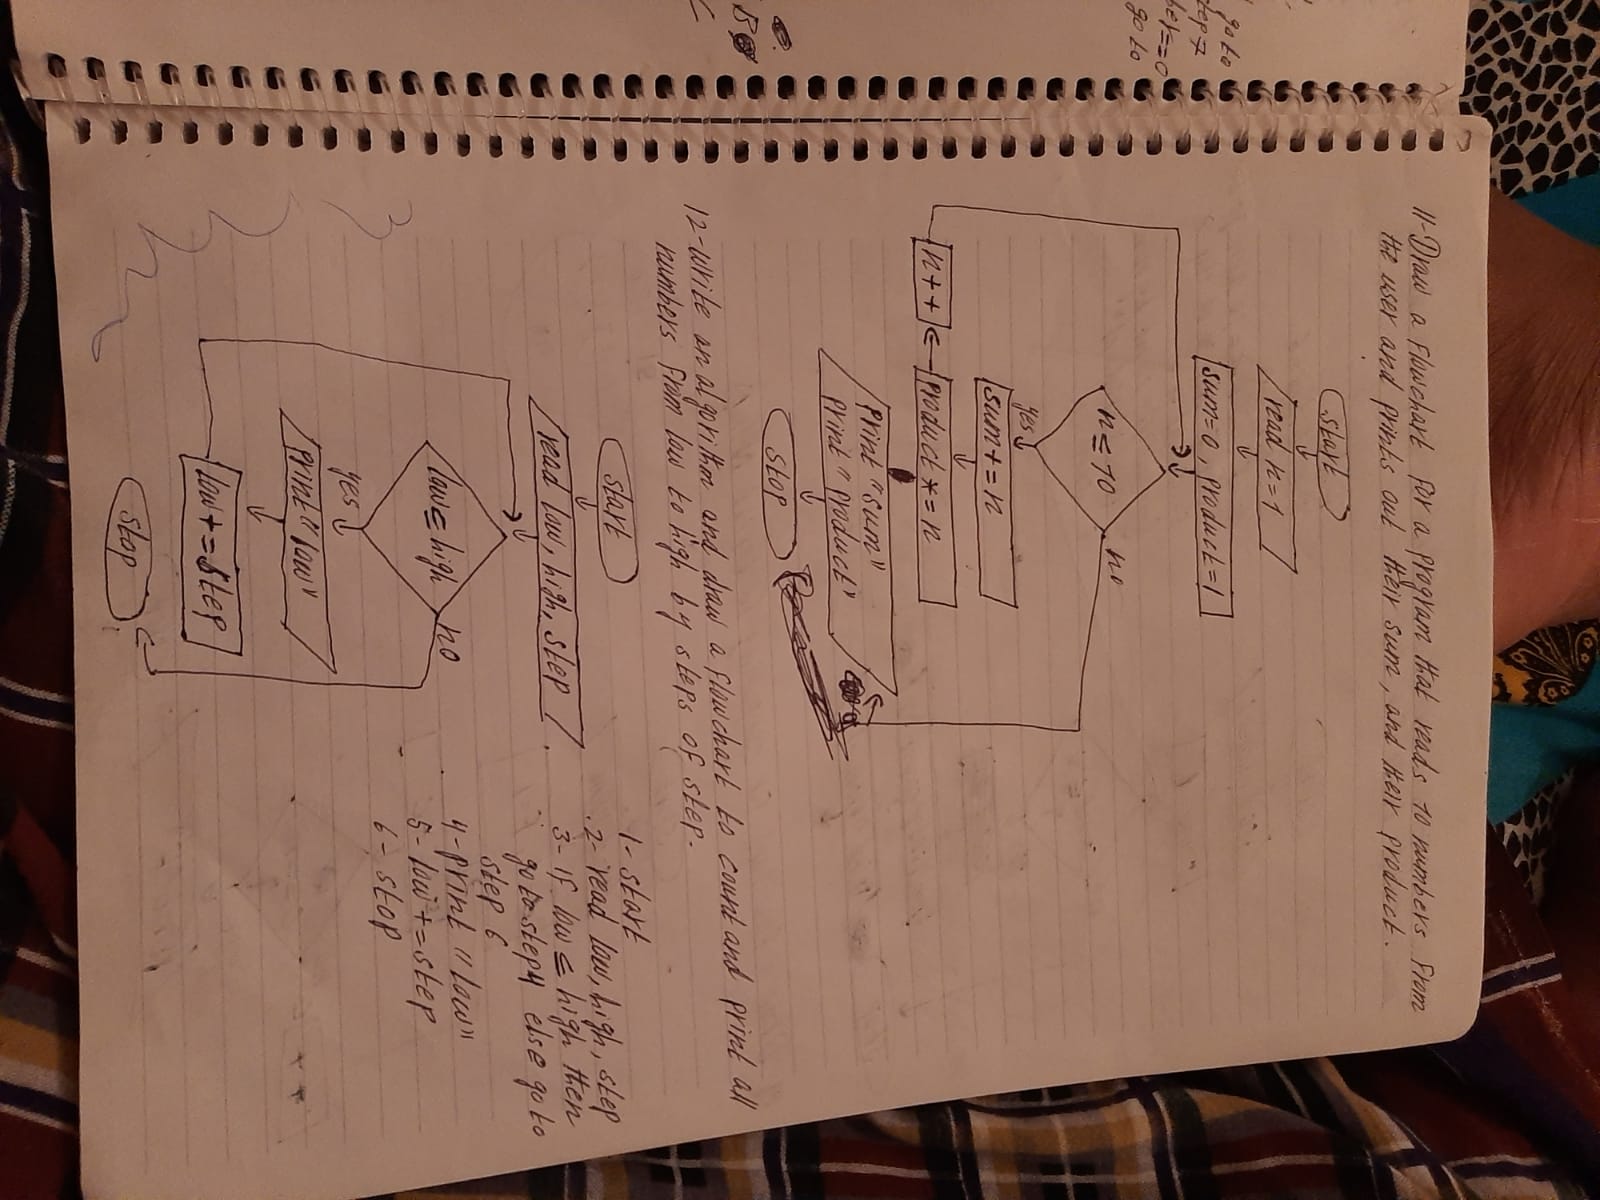 11-Draw a flowchart for a program that reads 10 numbers from
the user and prints out their sum, and their product.
start
read n=1
sum=0, product=1
n≤10
no
yes
sum+=n
product*=n
n++
print "sum"
print "product"
stop
12-write an algorithm and draw a flowchart to count and print all
numbers from low to high by steps of step.
start
read low, high, step
low≤high
no
yes
print "low"
low+=step
stop
1- start
2- read low, high, step
3- if low ≤ high then
go to step 4 else go to
step 6
4- print "low"
5- low+=step
6- stop
go to
step 7
==0
go to
B